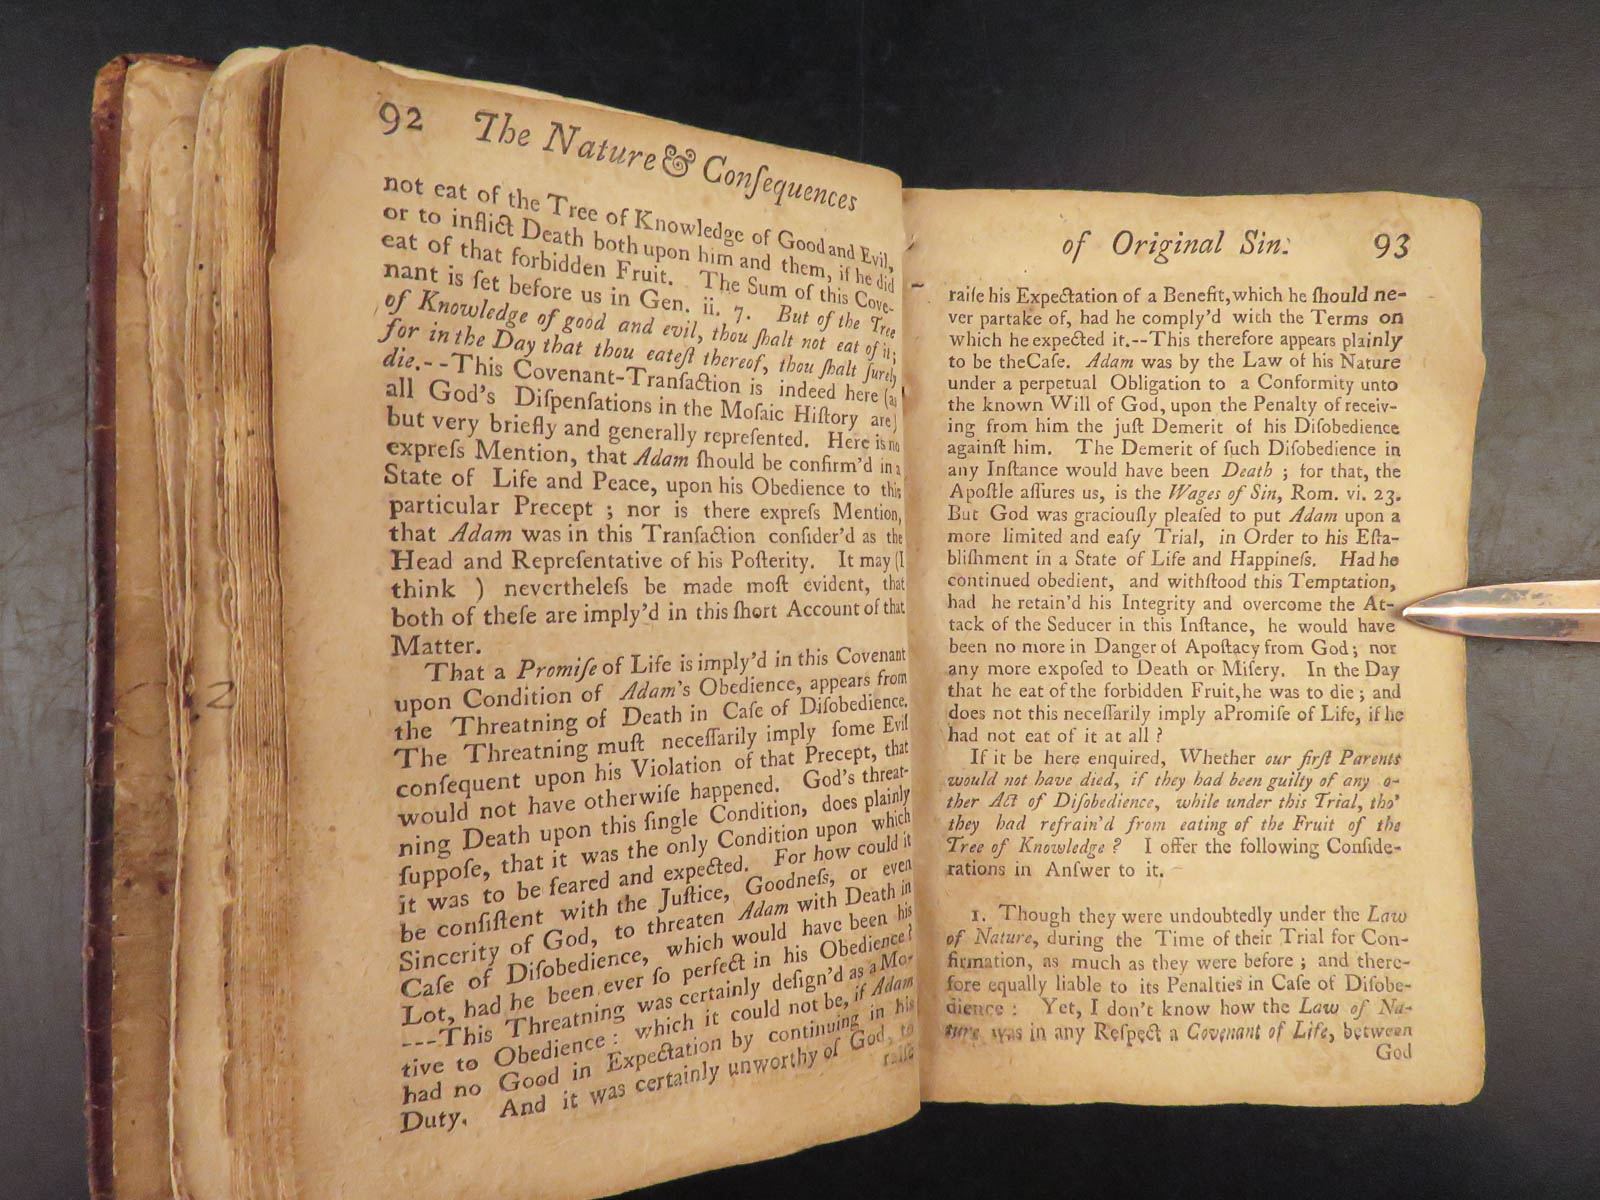 92 The Nature & Conſequences
not eat of the Tree of Knowledge of Good and Evil,
or to inflict Death both upon him and them, if he did
eat of that forbidden Fruit. The Sum of this Cove-
nant is ſet before us in Gen. ii. 7. But of the Tree
of Knowledge of good and evil, thou ſhalt not eat of it;
for in the Day that thou eateſt thereof, thou ſhalt ſurely
die.--This Covenant-Tranſaction is indeed here (as
all God's Diſpenſations in the Moſaic Hiſtory are)
but very briefly and generally repreſented. Here is no
expreſs Mention, that Adam ſhould be confirm'd in a
State of Life and Peace, upon his Obedience to this
particular Precept ; nor is there expreſs Mention,
that Adam was in this Tranſaction conſider'd as the
Head and Repreſentative of his Poſterity. It may (I
think ) nevertheleſs be made moſt evident, that
both of theſe are imply'd in this ſhort Account of that
Matter.
That a Promiſe of Life is imply'd in this Covenant
upon Condition of Adam's Obedience, appears from
the Threatning of Death in Caſe of Diſobedience.
The Threatning muſt neceſſarily imply ſome Evil
conſequent upon his Violation of that Precept, that
would not have otherwiſe happened. God's threat-
ning Death upon this ſingle Condition, does plainly
ſuppoſe, that it was the only Condition upon which
it was to be feared and expected. For how could it
be conſiſtent with the Juſtice, Goodneſs, or even
Sincerity of God, to threaten Adam with Death in
Caſe of Diſobedience, which would have been his
Lot, had he been ever ſo perfect in his Obedience?
---This Threatning was certainly deſign'd as a Mo-
tive to Obedience : which it could not be, if Adam
had no Good in Expectation by continuing in his
Duty. And it was certainly unworthy of God, to
raiſe
2
of Original Sin. 93
raiſe his Expectation of a Benefit, which he ſhould ne-
ver partake of, had he comply'd with the Terms on
which he expected it.--This therefore appears plainly
to be the Caſe. Adam was by the Law of his Nature
under a perpetual Obligation to a Conformity unto
the known Will of God, upon the Penalty of receiv-
ing from him the juſt Demerit of his Diſobedience
againſt him. The Demerit of ſuch Diſobedience in
any Inſtance would have been Death ; for that, the
Apoſtle aſſures us, is the Wages of Sin, Rom. vi. 23.
But God was graciouſly pleaſed to put Adam upon a
more limited and eaſy Trial, in Order to his Eſta-
bliſhment in a State of Life and Happineſs. Had he
continued obedient, and withſtood this Temptation,
had he retain'd his Integrity and overcome the At-
tack of the Seducer in this Inſtance, he would have
been no more in Danger of Apoſtacy from God ; nor
any more expoſed to Death or Miſery. In the Day
that he eat of the forbidden Fruit, he was to die ; and
does not this neceſſarily imply a Promiſe of Life, if he
had not eat of it at all ?
If it be here enquired, Whether our firſt Parents
would not have died, if they had been guilty of any o-
ther Act of Diſobedience, while under this Trial, tho'
they had refrain'd from eating of the Fruit of the
Tree of Knowledge ? I offer the following Conſide-
rations in Anſwer to it.
1. Though they were undoubtedly under the Law
of Nature, during the Time of their Trial for Con-
firmation, as much as they were before ; and there-
fore equally liable to its Penalties in Caſe of Diſobe-
dience : Yet, I don't know how the Law of Na-
ture was in any Reſpect a Covenant of Life, between
God